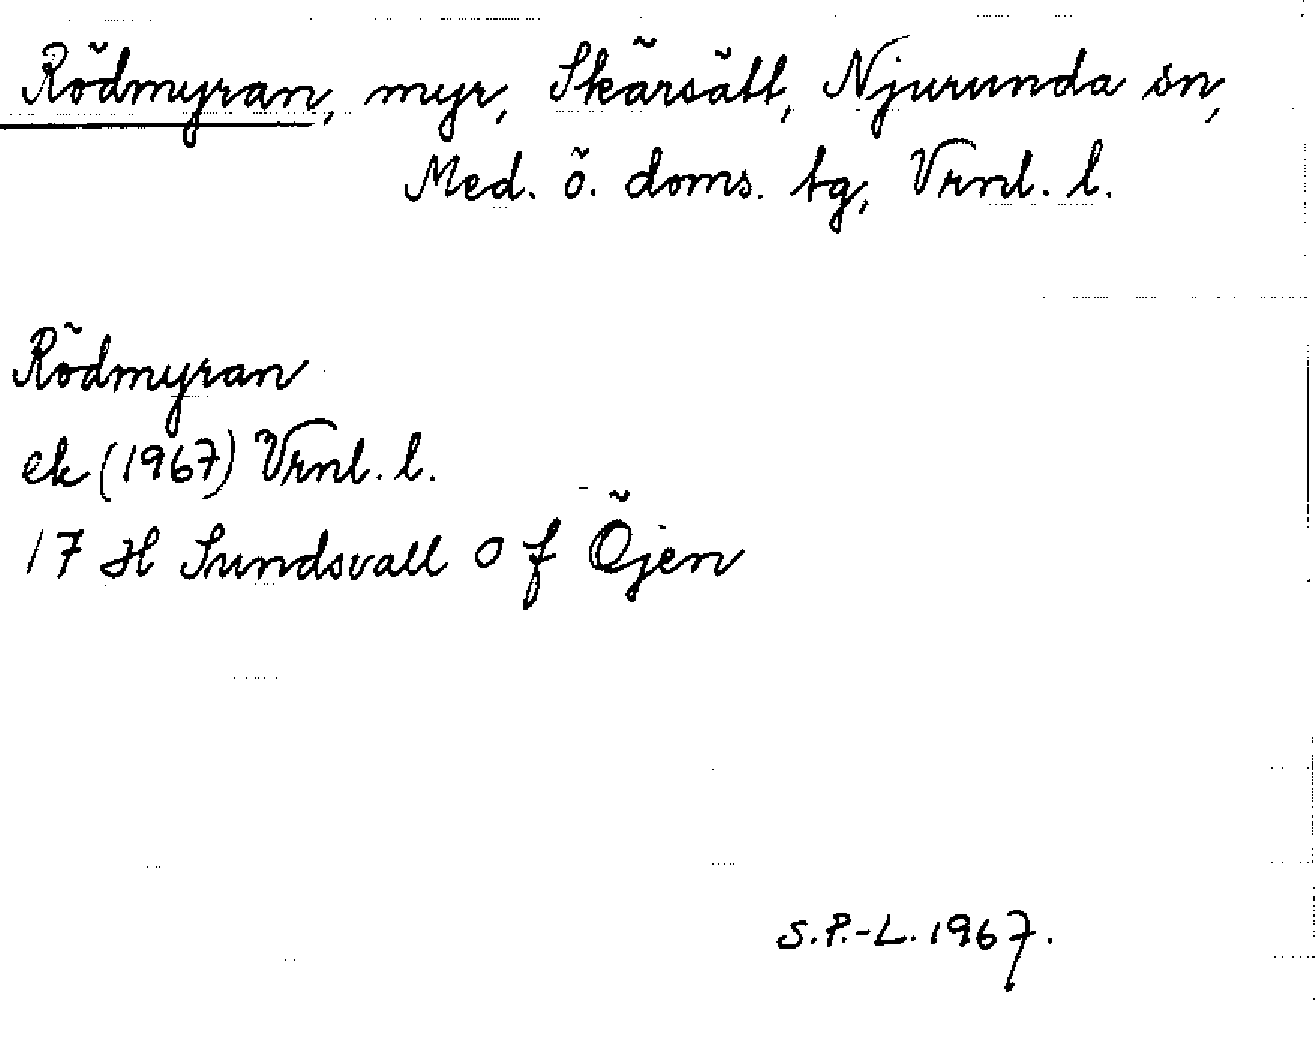 Rödmyran, myr, Skärsätt, Njurunda sn,
Med. ö. doms. tg, Vrnl. l.
Rödmyran
ek (1967) Vrnl. l.
17 H Sundsvall O f Öjen
S.P.-L. 1967.